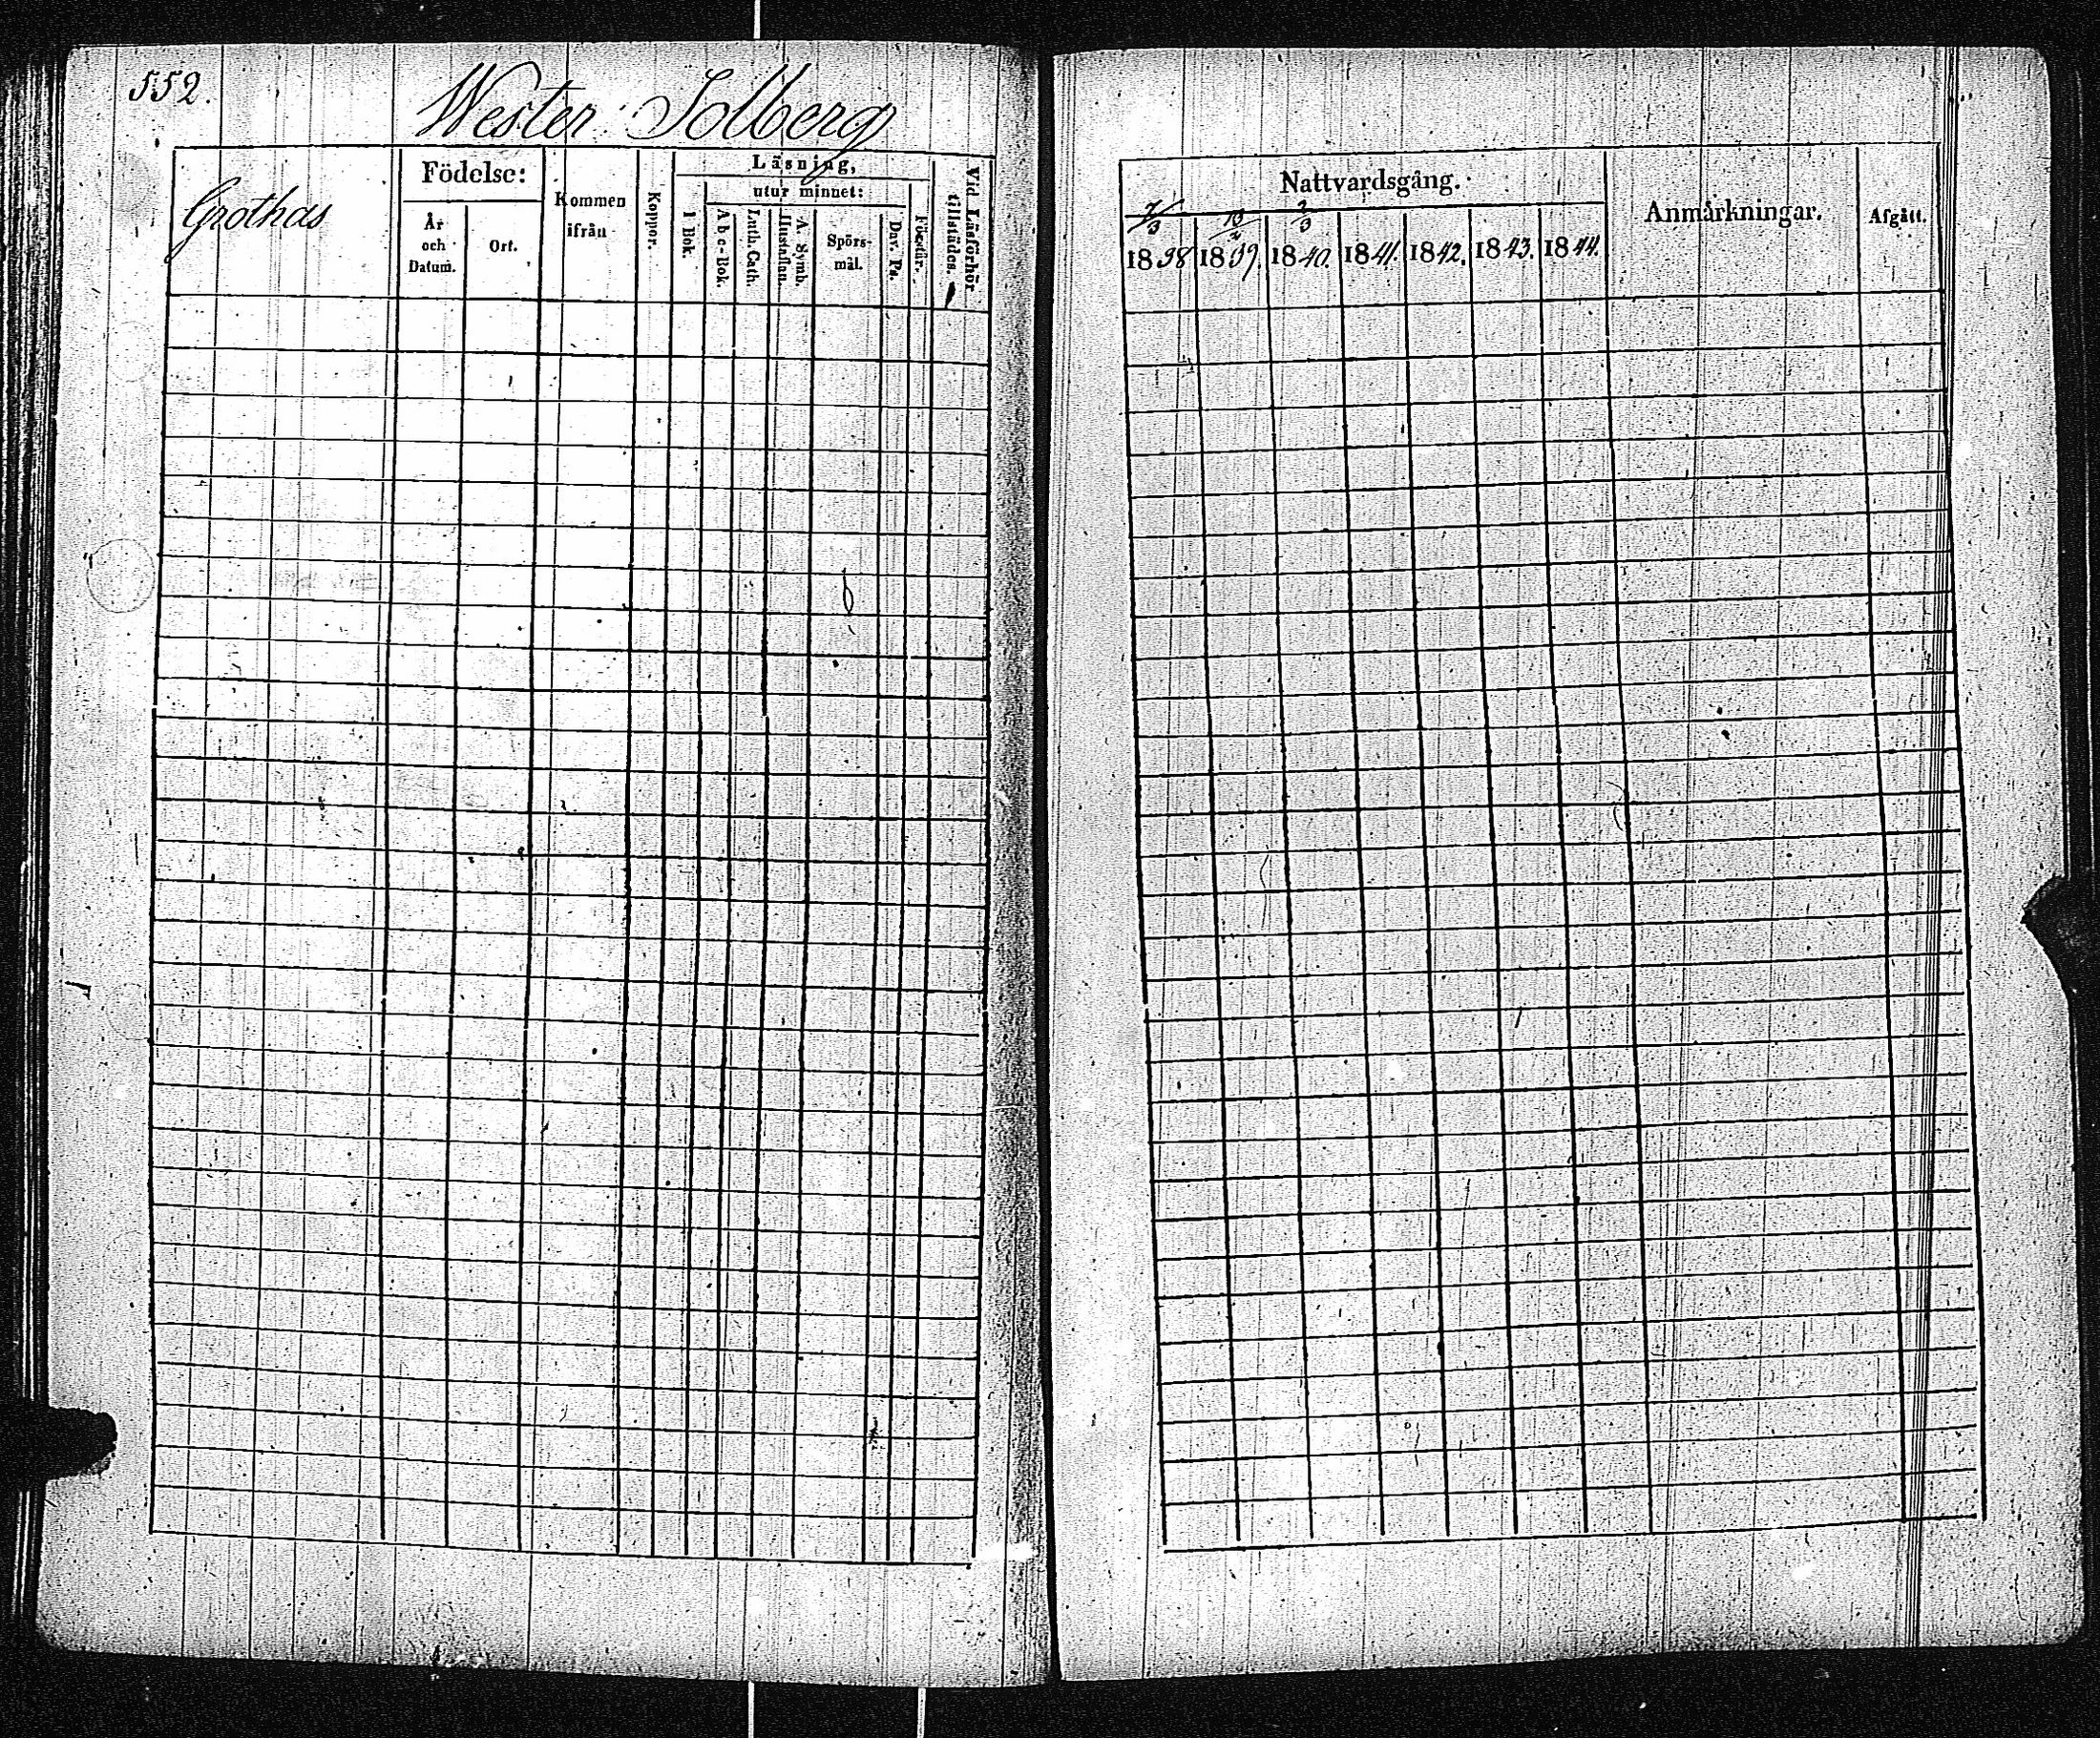 552.
Wester Solberg
Grothas
Födelse:
År
och
Datum.
Ort.
Kommen
ifrån
Koppor.
Läsning,
utur minnet:
I Bok.
Abc-Bok.
Luth. Cath.
A. Symb.
Hustaflan.
Spörs-
mål.
Dav. Ps.
Förstår.
Vid Läsförhör
tillstädes.
Nattvardsgång.
7/3 10/2 2/3
1838 1839. 1840. 1841. 1842. 1843. 1844.
Anmärkningar.
Afgått.